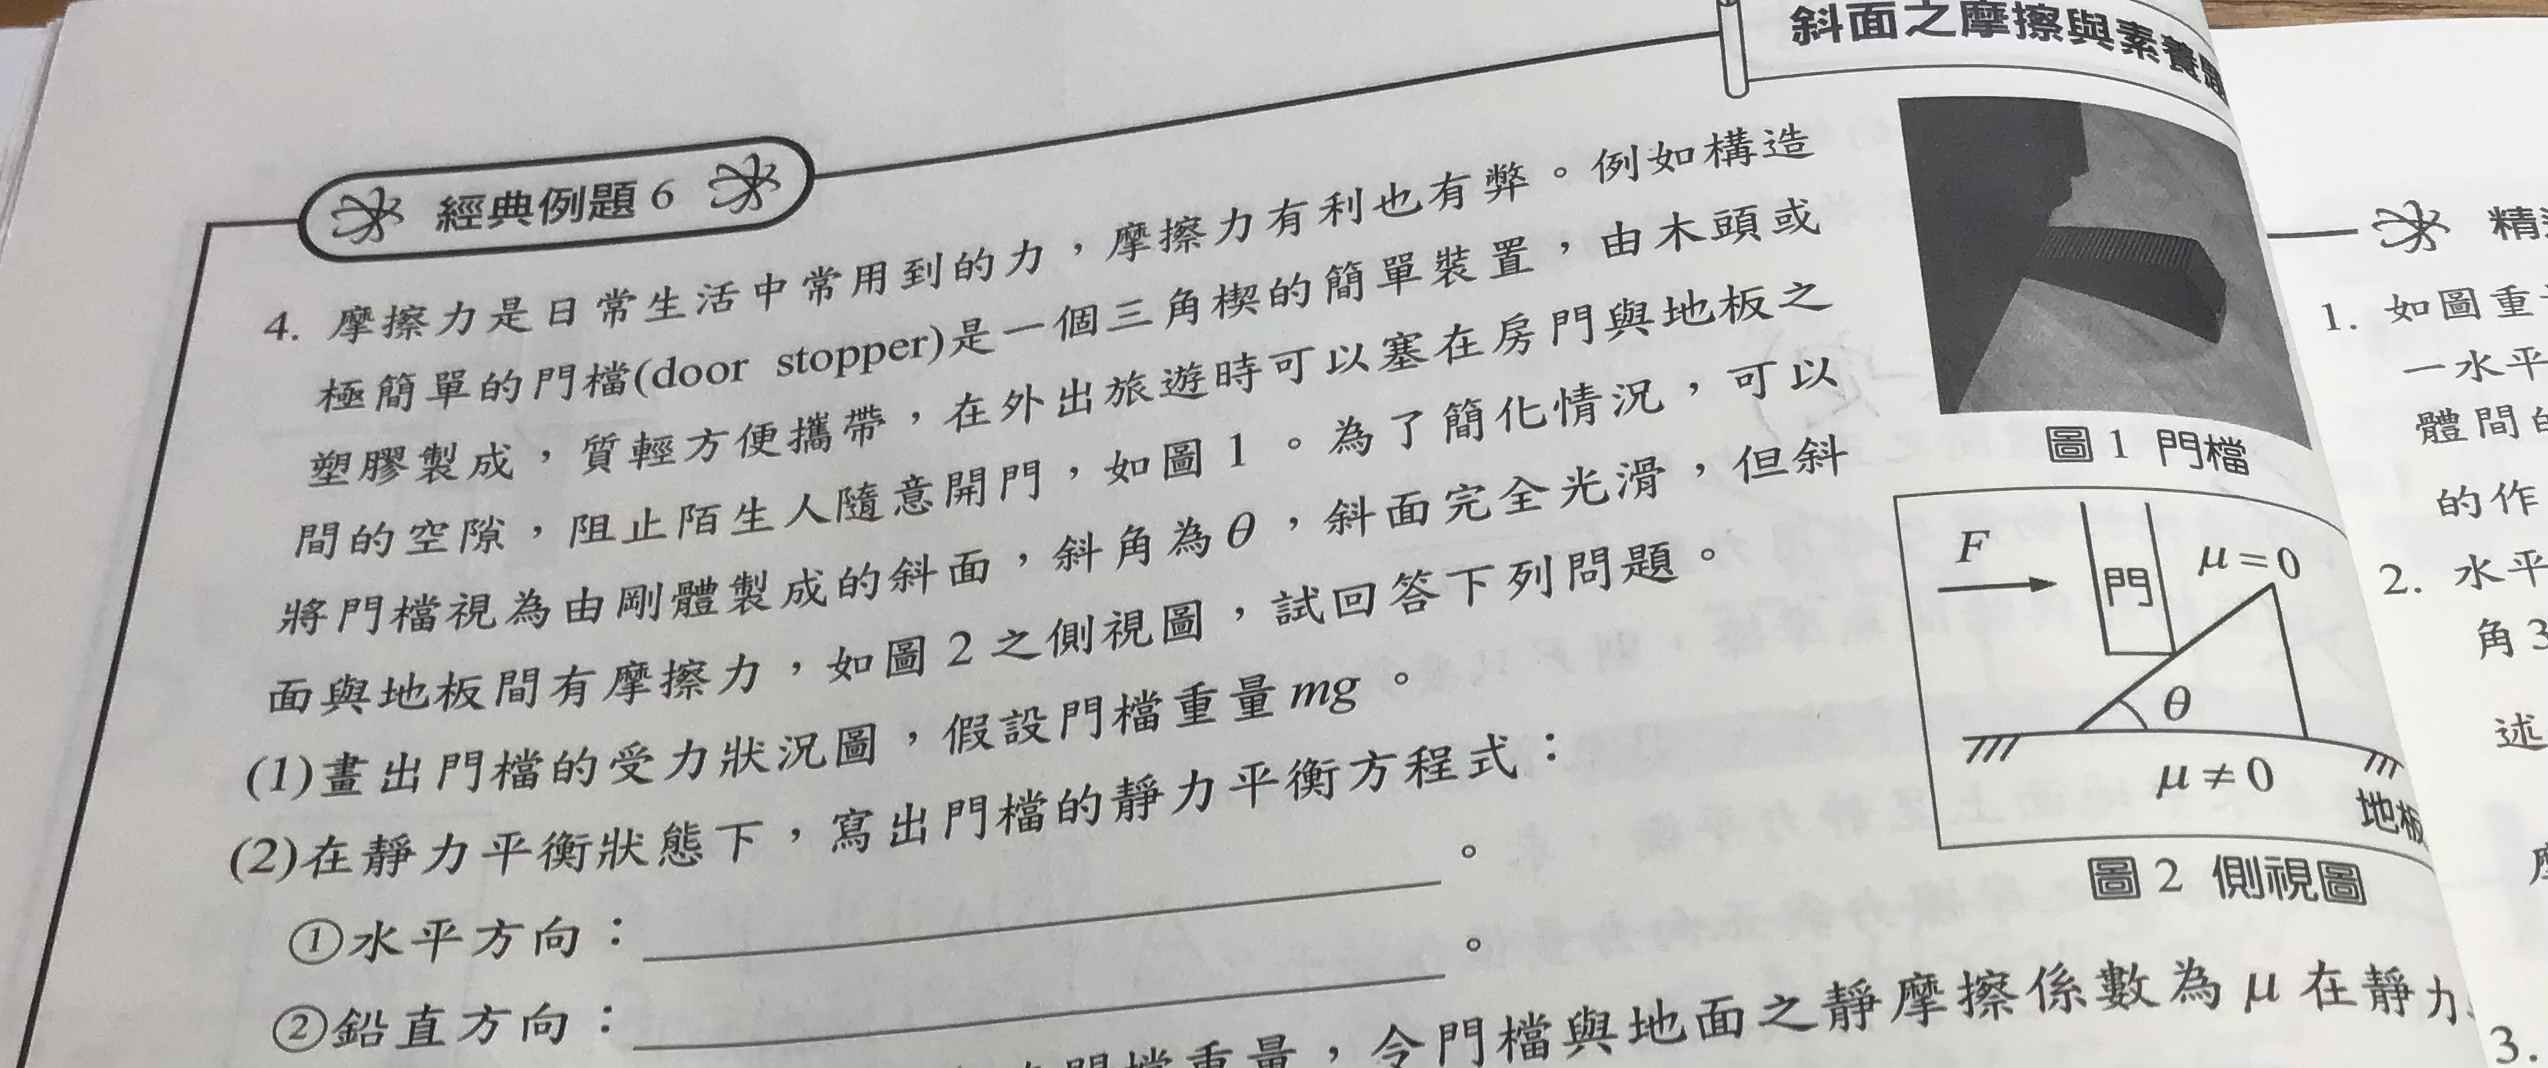 斜面之摩擦與素養題
經典例題 6
4. 摩擦力是日常生活中常用到的力，摩擦力有利也有弊。例如構造
極簡單的門檔(door stopper)是一個三角楔的簡單裝置，由木頭或
塑膠製成，質輕方便攜帶，在外出旅遊時可以塞在房門與地板之
間的空隙，阻止陌生人隨意開門，如圖 1 。為了簡化情況，可以
將門檔視為由剛體製成的斜面，斜角為θ，斜面完全光滑，但斜
面與地板間有摩擦力，如圖 2 之側視圖，試回答下列問題。
(1)畫出門檔的受力狀況圖，假設門檔重量mg。
(2)在靜力平衡狀態下，寫出門檔的靜力平衡方程式：
①水平方向：。
②鉛直方向：。
門檔重量，令門檔與地面之靜摩擦係數為 μ 在靜力
圖 1 門檔
F
門
μ=0
θ
μ≠0
地板
圖 2 側視圖
精
1. 如圖重
一水平
體間的
的作
2. 水平
角 3
述
3.